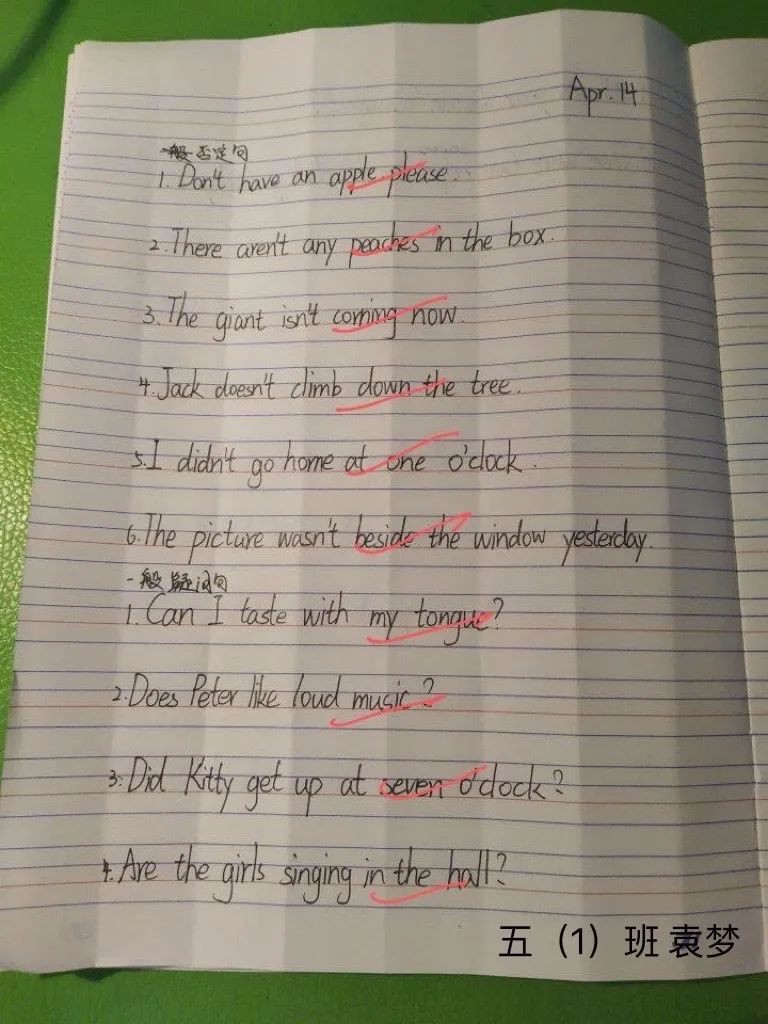 Apr. 14
否定句
1. Don't have an apple, please.
2. There aren't any peaches in the box.
3. The giant isn't coming now.
4. Jack doesn't climb down the tree.
5. I didn't go home at one o'clock.
6. The picture wasn't beside the window yesterday.
一般疑问句
1. Can I taste with my tongue?
2. Does Peter like loud music?
3. Did Kitty get up at seven o'clock?
4. Are the girls singing in the hall?
五（1）班 袁梦